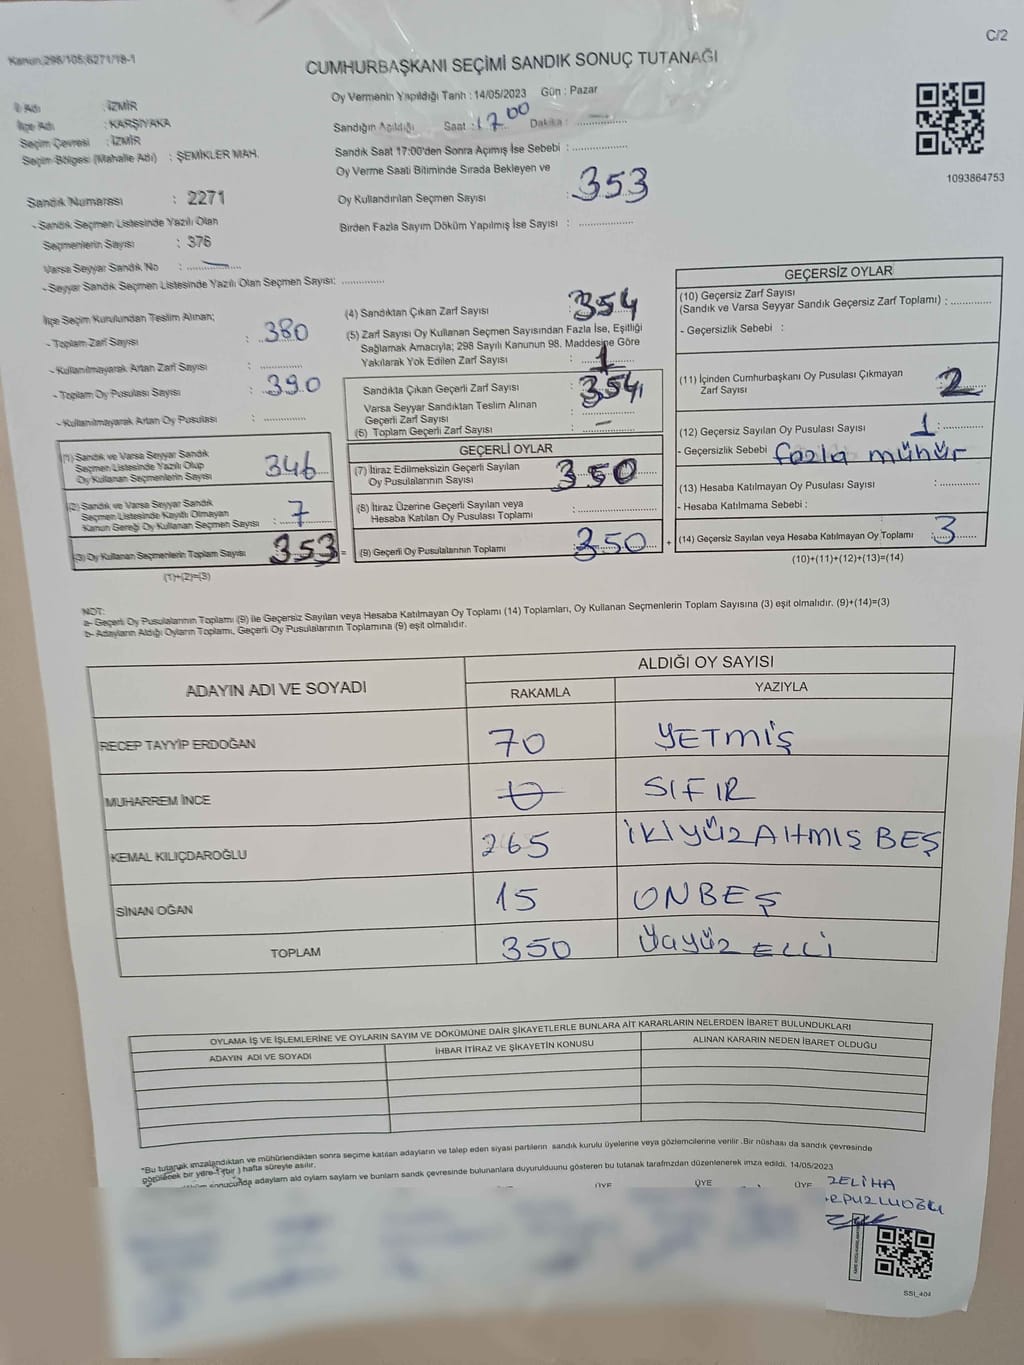 C/2
Kanun;298/105;6271/18-1
CUMHURBAŞKANI SEÇİMİ SANDIK SONUÇ TUTANAĞI
İl Adı : İZMİR
İlçe Adı : KARŞIYAKA
Seçim Çevresi : İZMİR
Seçim Bölgesi (Mahalle Adı) : ŞEMİKLER MAH.
Sandık Numarası : 2271
- Sandık Seçmen Listesinde Yazılı Olan
Seçmenlerin Sayısı : 376
Varsa Seyyar Sandık No : ............
- Seyyar Sandık Seçmen Listesinde Yazılı Olan Seçmen Sayısı: ............
Oy Vermenin Yapıldığı Tarih : 14/05/2023 Gün : Pazar
Sandığın Açıldığı Saat : 17 00 Dakika : ............
Sandık Saat 17:00'den Sonra Açımış İse Sebebi : ............
Oy Verme Saati Bitiminde Sırada Bekleyen ve
Oy Kullandırılan Seçmen Sayısı : 353
Birden Fazla Sayım Döküm Yapılmış İse Sayısı : ............
1093864753
İlçe Seçim Kurulundan Teslim Alınan;
- Toplam Zarf Sayısı : 380
- Kullanılmayarak Artan Zarf Sayısı : ............
- Toplam Oy Pusulası Sayısı : 390
- Kullanılmayarak Artan Oy Pusulası : ............
(1) Sandık ve Varsa Seyyar Sandık
Seçmen Listesinde Yazılı Olup
Oy Kullanan Seçmenlerin Sayısı 346
(2) Sandık ve Varsa Seyyar Sandık
Seçmen Listesinde Kayıtlı Olmayan
Kanun Gereği Oy Kullanan Seçmen Sayısı : 7
(3) Oy Kullanan Seçmenlerin Toplam Sayısı 353 =
(1)+(2)=(3)
(4) Sandıktan Çıkan Zarf Sayısı : 354
(5) Zarf Sayısı Oy Kullanan Seçmen Sayısından Fazla İse, Eşitliği
Sağlamak Amacıyla; 298 Sayılı Kanunun 98. Maddesine Göre
Yakılarak Yok Edilen Zarf Sayısı : 1
Sandıkta Çıkan Geçerli Zarf Sayısı : 354
Varsa Seyyar Sandıktan Teslim Alınan
Geçerli Zarf Sayısı : ............
(6) Toplam Geçerli Zarf Sayısı : –
GEÇERLİ OYLAR
(7) İtiraz Edilmeksizin Geçerli Sayılan
Oy Pusulalarının Sayısı : 350
(8) İtiraz Üzerine Geçerli Sayılan veya
Hesaba Katılan Oy Pusulası Toplamı : ............
(9) Geçerli Oy Pusulalarının Toplamı 350 +
GEÇERSİZ OYLAR
(10) Geçersiz Zarf Sayısı
(Sandık ve Varsa Seyyar Sandık Geçersiz Zarf Toplamı) : ............
- Geçersizlik Sebebi :
(11) İçinden Cumhurbaşkanı Oy Pusulası Çıkmayan
Zarf Sayısı 2
(12) Geçersiz Sayılan Oy Pusulası Sayısı 1 : ............
- Geçersizlik Sebebi fazla mühür
(13) Hesaba Katılmayan Oy Pusulası Sayısı : ............
- Hesaba Katılmama Sebebi :
(14) Geçersiz Sayılan veya Hesaba Katılmayan Oy Toplamı : 3
(10)+(11)+(12)+(13)=(14)
NOT:
a- Geçerli Oy Pusulalarının Toplamı (9) ile Geçersiz Sayılan veya Hesaba Katılmayan Oy Toplamı (14) Toplamları, Oy Kullanan Seçmenlerin Toplam Sayısına (3) eşit olmalıdır. (9)+(14)=(3)
b- Adayların Aldığı Oyların Toplamı, Geçerli Oy Pusulalarının Toplamına (9) eşit olmalıdır.
ADAYIN ADI VE SOYADI ALDIĞI OY SAYISI
RAKAMLA YAZIYLA
RECEP TAYYİP ERDOĞAN 70 YETMİŞ
MUHARREM İNCE 0 SIFIR
KEMAL KILIÇDAROĞLU 265 İKİYÜZALTMIŞ BEŞ
SİNAN OĞAN 15 ONBEŞ
TOPLAM 350 ÜÇYÜZ ELLİ
OYLAMA İŞ VE İŞLEMLERİNE VE OYLARIN SAYIM VE DÖKÜMÜNE DAİR ŞİKAYETLERLE BUNLARA AİT KARARLARIN NELERDEN İBARET BULUNDUKLARI
ADAYIN ADI VE SOYADI İHBAR İTİRAZ VE ŞİKAYETİN KONUSU ALINAN KARARIN NEDEN İBARET OLDUĞU
*Bu tutanak imzalandıktan ve mühürlendikten sonra seçime katılan adayların ve talep eden siyasi partilerin sandık kurulu üyelerine veya gözlemcilerine verilir .Bir nüshası da sandık çevresinde
görülecek bir yere 1 (bir) hafta süreyle asılır.
sonucunda adayların ald oyların sayıların ve bunların sandık çevresinde bulunanlara duyurulduunu gösteren bu tutanak tarafımzdan düzenlenerek imza edildi. 14/05/2023
ÜYE ÜYE ÜYE ZELİHA
SSI_404